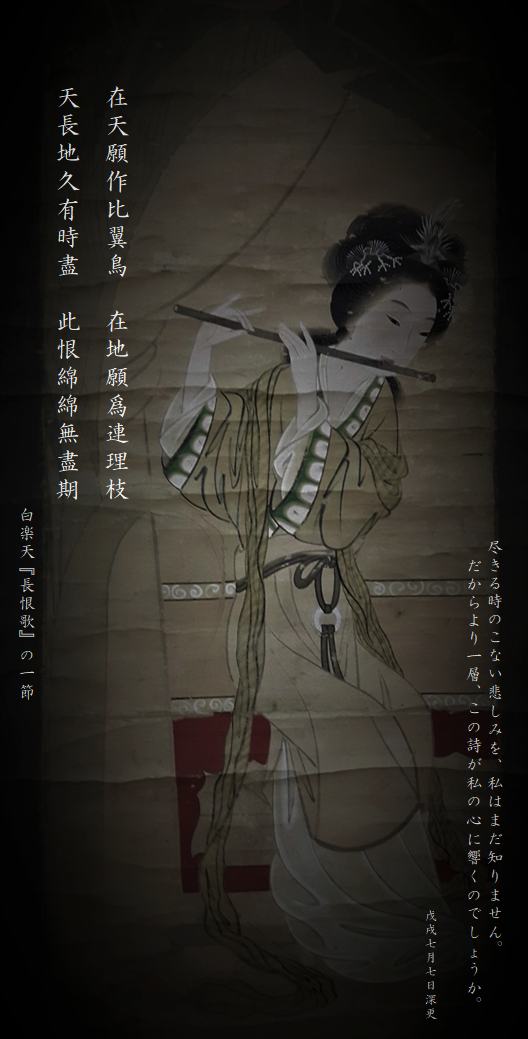 在天願作比翼鳥　在地願爲連理枝
天長地久有時盡　此恨綿綿無盡期
白楽天『長恨歌』の一節
尽きる時のこない悲しみを、私はまだ知りません。
だからより一層、この詩が私の心に響くのでしょうか。
戊戌七月七日深更